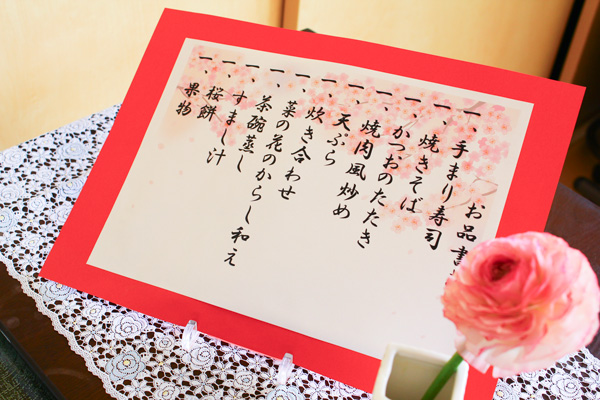 お品書
一、手まり寿司
一、焼きそば
一、かつおのたたき
一、焼肉風炒め
一、天ぷら
一、炊き合わせ
一、菜の花のからし和え
一、茶碗蒸し
一、すまし汁
一、桜餅
一、果物